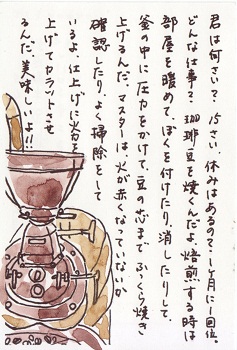 君は何さい？ 15さい。休みはあるの？1ヶ月に1回位。
どんな仕事？ 珈琲豆を焼くんだよ。焙煎する時は
部屋を暖めて、ぼくを付けたり、消したりして、
釜の中に圧力をかけて、豆の芯まで ふっくら焼き
上げるんだ。マスターは、火が赤くなっていないか
確認したり、よく掃除をして
いるよ。仕上げに火力を
上げてカラッとさせ
るんだ。美味しいよ!!